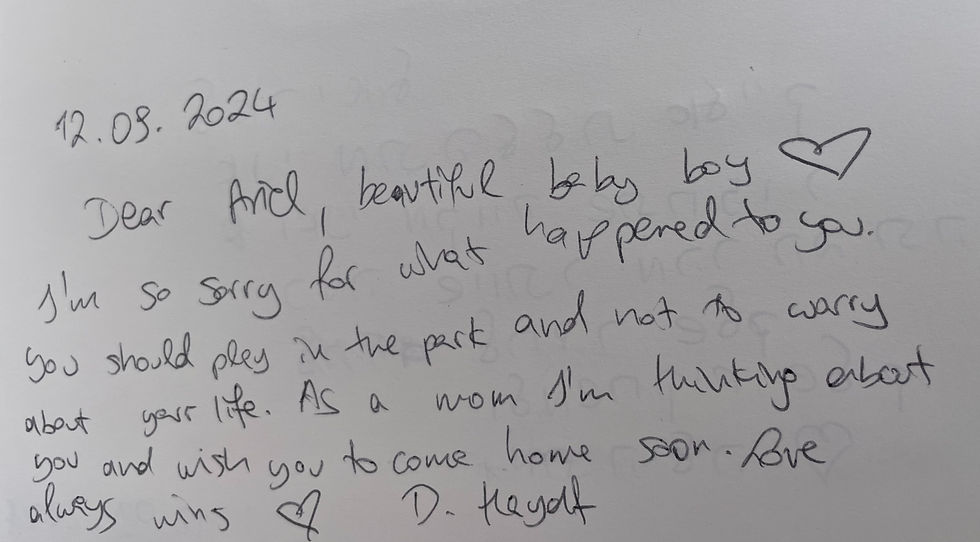 12.09.2024
Dear Ariel, beautiful baby boy ♡
I'm so sorry for what happened to you.
you should play in the park and not to warry
about your life. As a mom I'm thinking about
you and wish you to come home soon. Love
always wins ♡ D.